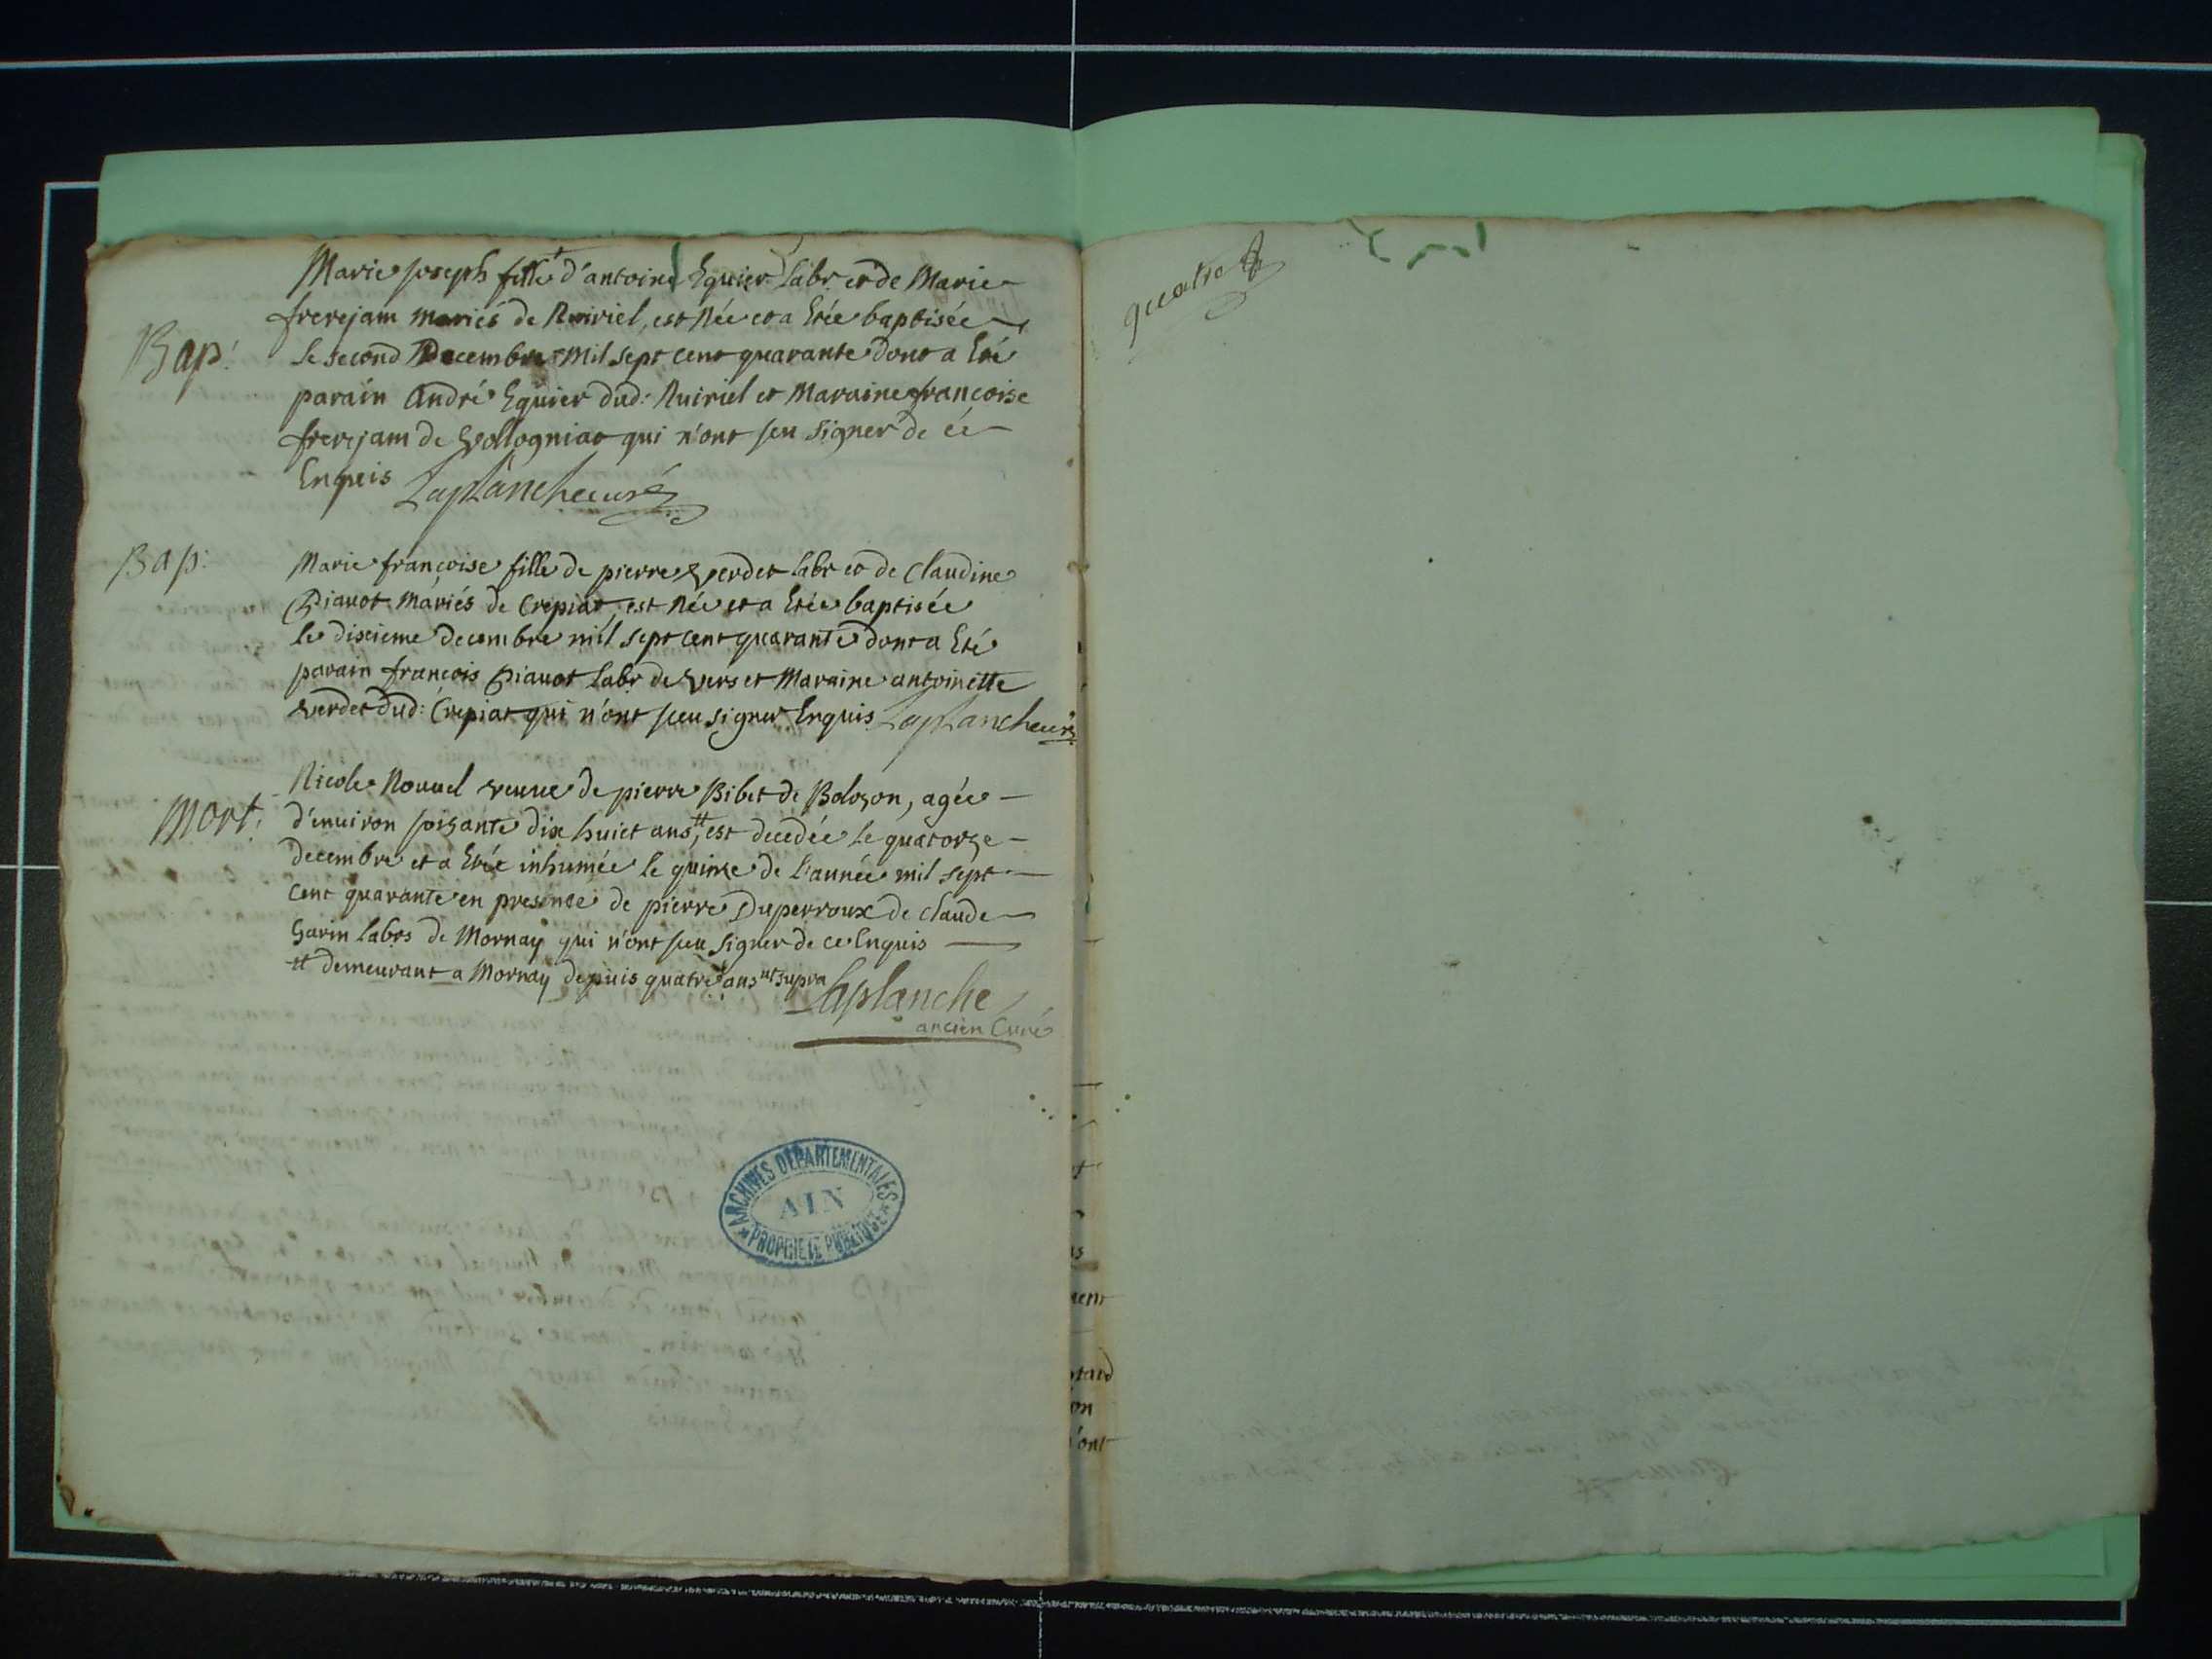 Marie Joseph fille d'antoine Equier Labr. et de Marie
frerejam mariés de Nuiriel, est Née et a Etée baptisée
Bap:
le second Decembre Mil sept cent quarante dont a Eté
parain André Equier dud: Nuiriel et Maraine francoise
frerejam de Vollogniat qui n'ont sçu signer de ce
Enqueis Laplanche curé
Bap:
Marie françoise fille de pierre Verdet labr et de Claudine
Piauot Mariés de Crepiat, est Née et a Etée baptisée
le dixieme decembre mil sept cent quarante dont a Eté
parain françois Piauot labr de Vers et Maraine antoinette
Verdet dud: Crepiat qui n'ont sceu signer Enquis Laplanche curé
Nicole Nouuel veuue de pierre Bibet de Bolozon, agée
Mort:
d'enuiron soizante dix huict ans, # est decedée le quatorze
decembre et a Etée inhumée le quinze de l'année mil sept
cent quarante en presence de pierre Duperroux de claude
Garin labrs de Mornay qui n'ont sceu signer de ce Enquis
# demeurant a Mornay depuis quatre ans ut supra
Laplanche
ancien Curé
ARCHIVES DEPARTEMENTALES
AIN
PROPRIETE PUBLIQUE
quatre
nent
on
n'ont